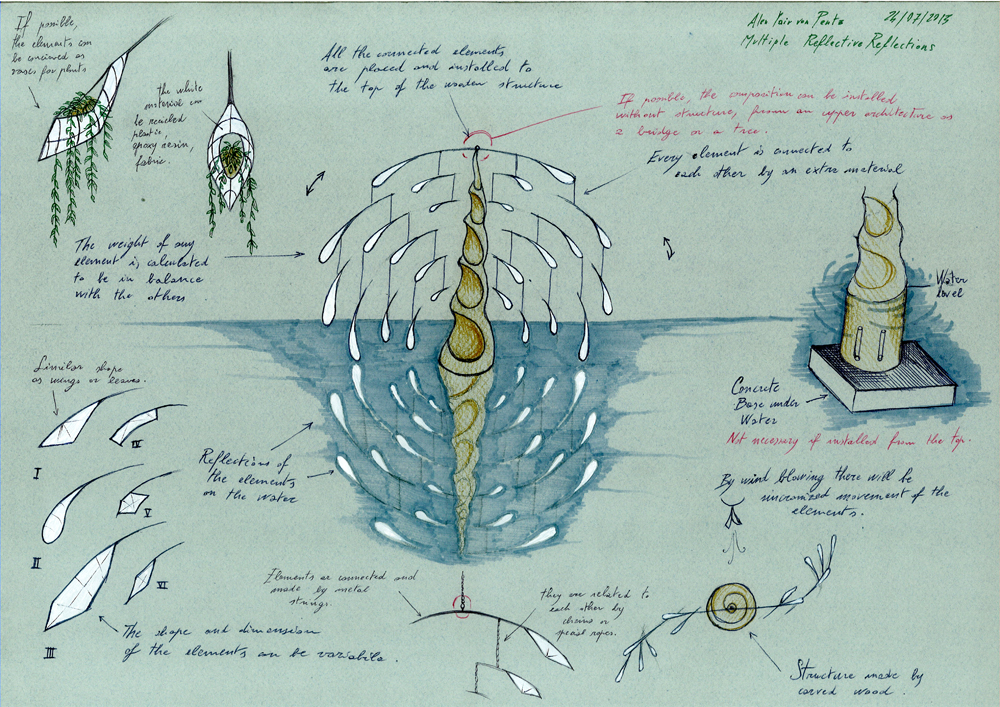 If possible,
the elements can
be conceived as
vases for plants
the white
material can
be recicled
plastic,
epoxy resin,
fabric.
All the connected elements
are placed and installed to
the top of the wooden structure
Alex Yair von Penta 26/07/2015
Multiple Reflective Reflections
If possible, the composition can be installed
without structure, from an upper architecture as
a bridge or a tree.
Every element is connected to
each other by an extra material
The weight of any
element is calculated
to be in balance
with the others
Water
level
Similar shape
as wings or leaves.
I
IV
II
V
III
VI
Reflections of
the elements
on the water
Concrete
Base under
Water
Not necessary if installed from the top.
By wind blowing there will be
sincronized movement of the
elements.
Elements are connected and
made by metal
strings.
they are related to
each other by
chains or
special ropes.
The shape and dimension
of the elements can be variable.
Structure made by
carved wood.